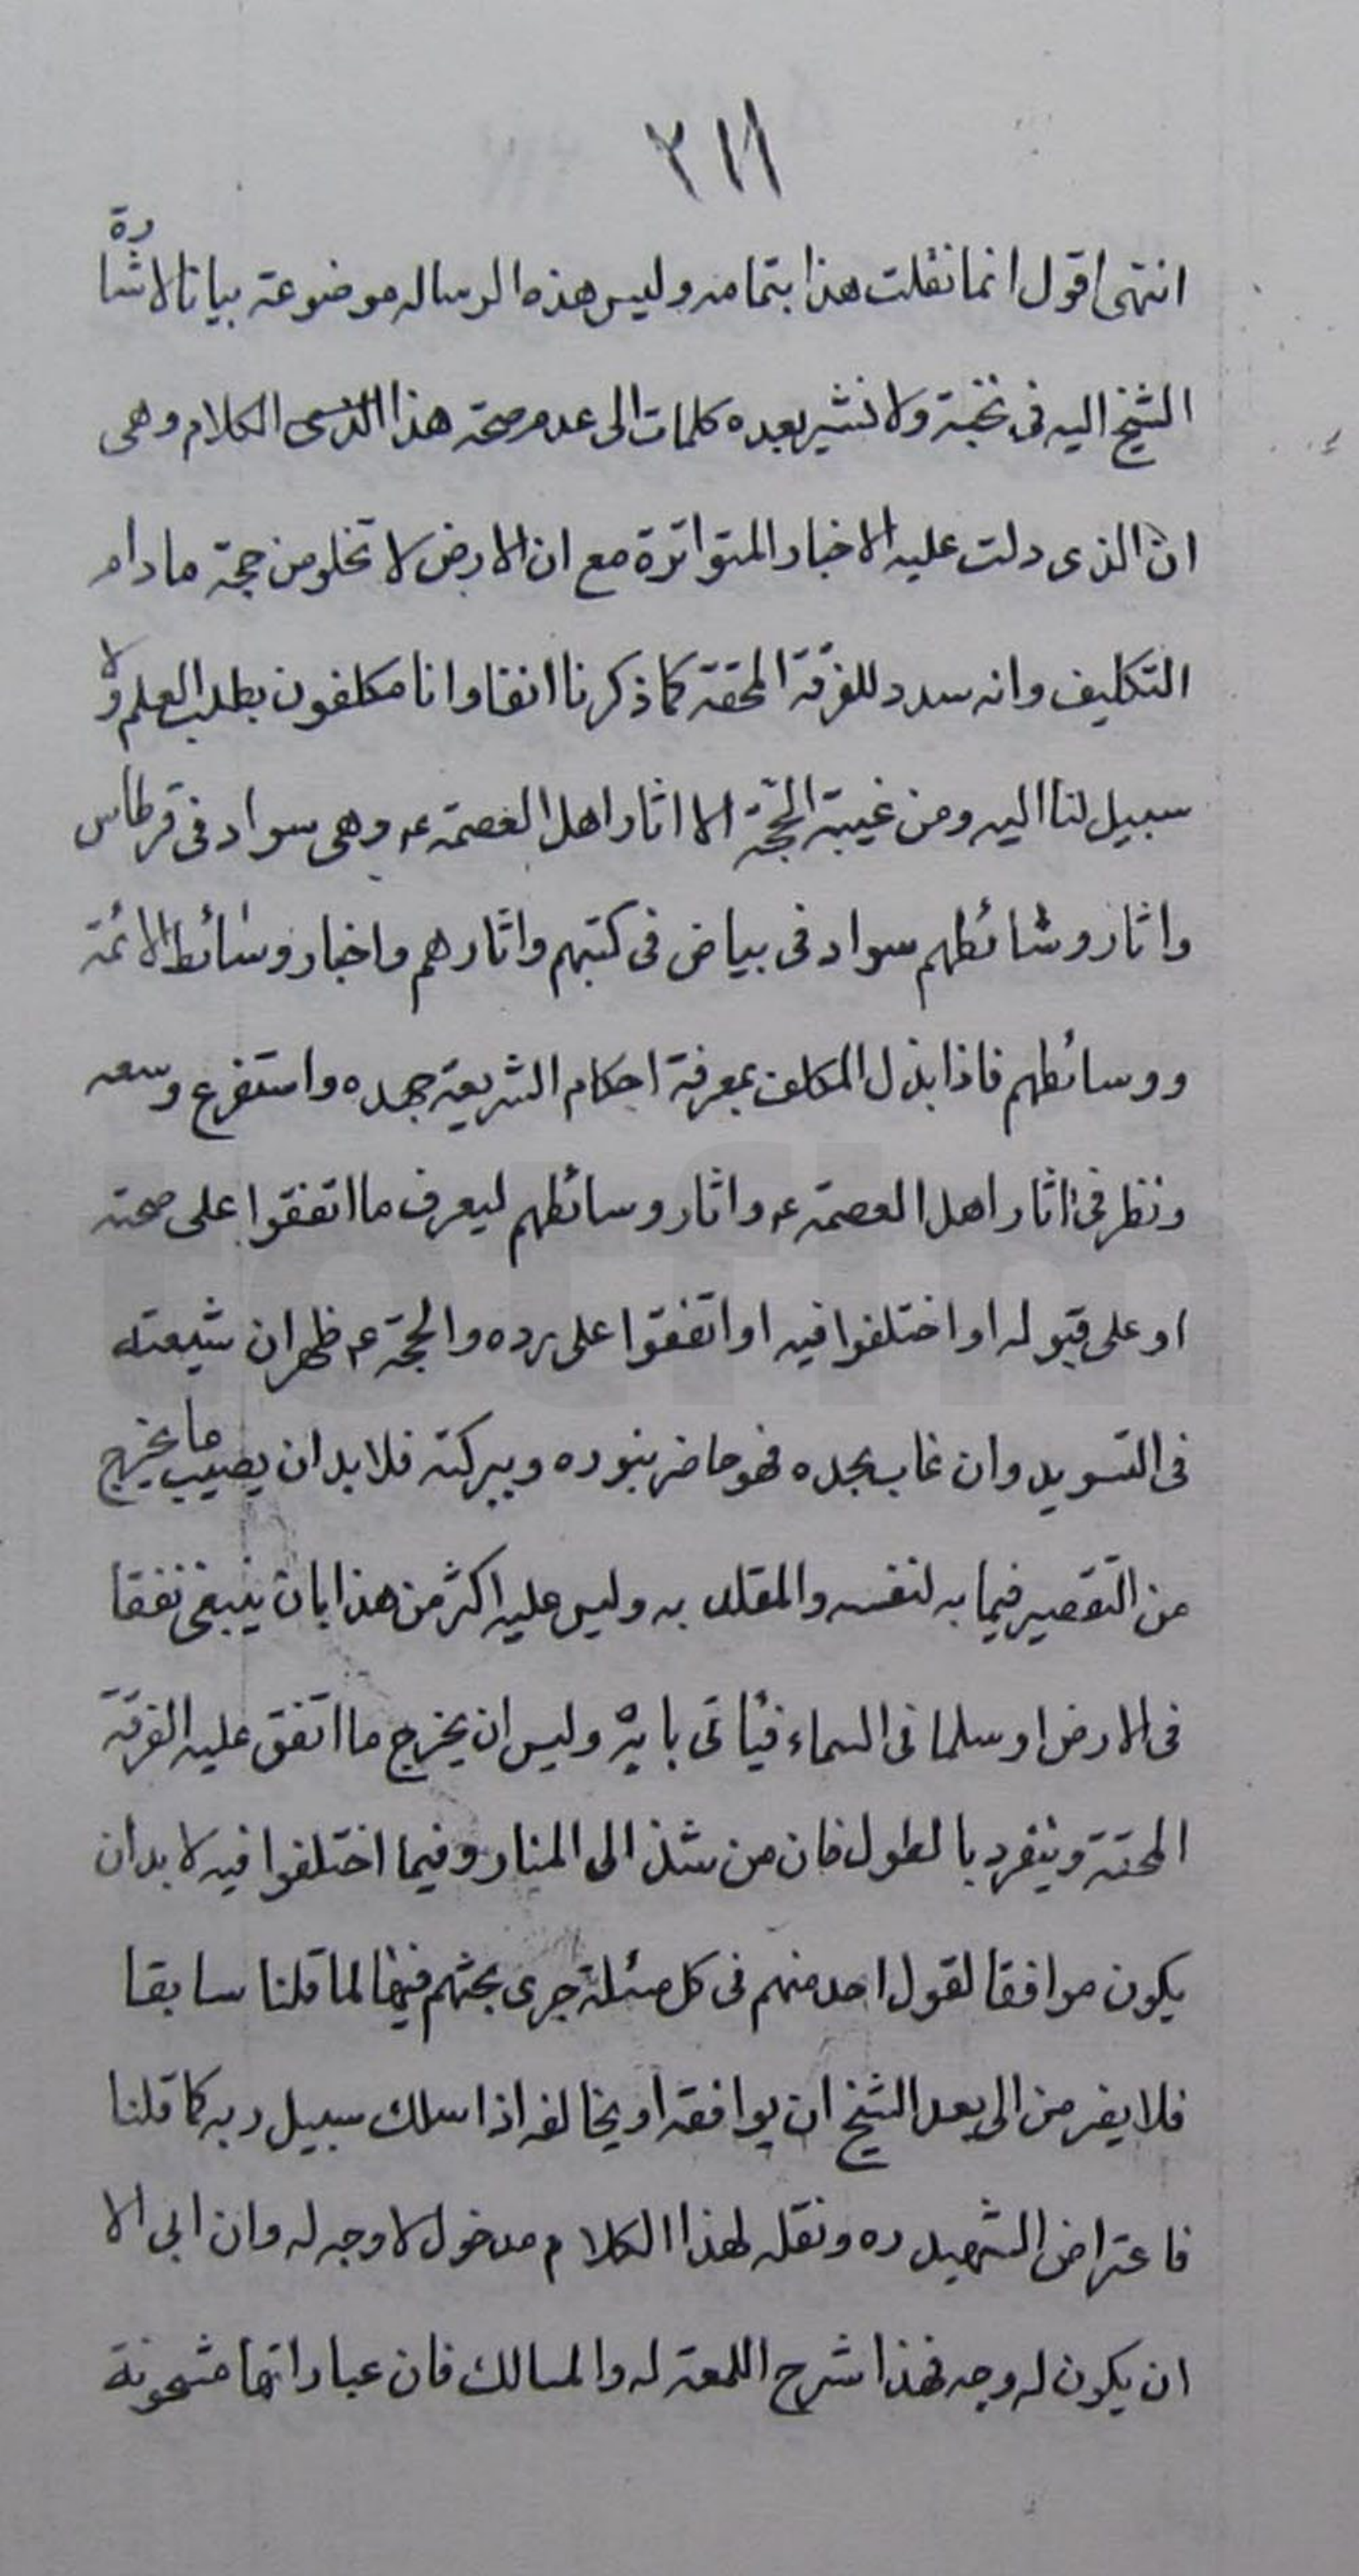 ٢١١
انتهى اقول انما نقلت هذا بتمامه وليس هذه الرساله موضوعة بيانا لاشارة
الشيخ اليه فى نخبة ولا نشير بعده كلمات الى عدم صحة هذا الكلام وهى
ان الذى دلت عليه الاخبار المتواترة مع ان الارض لا تخلو من حجة ما دام
التكليف وانه سدد للفرقة المحقة كما ذكرنا انفا وانا مكلفون بطلب العلم ولا
سبيل لنا اليه ومن غيبة الحجّة الا اثار اهل العصمة ع وهى سواد فى قرطاس
واثار وسائطهم سواد فى بياض فى كتبهم واثارهم واخبار وسائط الائمة
ووسائطهم فاذا بذل المكلف بمعرفة احكام الشريعة جهده واستفرغ وسعه
ونظر فى اثار اهل العصمة ع واثار وسائطهم ليعرف ما اتفقوا على صحته
او على قبوله او اختلفوا فيه او اتفقوا على رده والحجة ع ظهران شيعته
فى التسويد وان غاب بجده فهو حاضر بنوره وببركته فلا بد ان يصيب ما يخرج
من التقصير فيما به لنفسه والمقلد به وليس عليه اكثر من هذا بان ينبغى نفقا
فى الارض او سلما فى السماء فيأتى باية وليس ان يخرج ما اتفق عليه الفرقة
المحقة وينفرد بالطول فان من شذ الى المنار وفيما اختلفوا فيه لا بد ان
يكون موافقا لقول احد منهم فى كل مسئلة جرى بحثهم فيها لما قلنا سابقا
فلا يفر من الى بعد الشيخ ان يوافقه او يخالفه اذا سلك سبيل ربه كما قلنا
فاعتراض الشهيد ره ونقله لهذا الكلام مدخول لا وجه له وان ابى الا
ان يكون له وجه فهذا شرح اللمعة له والمسالك فان عباراتها مشحونة